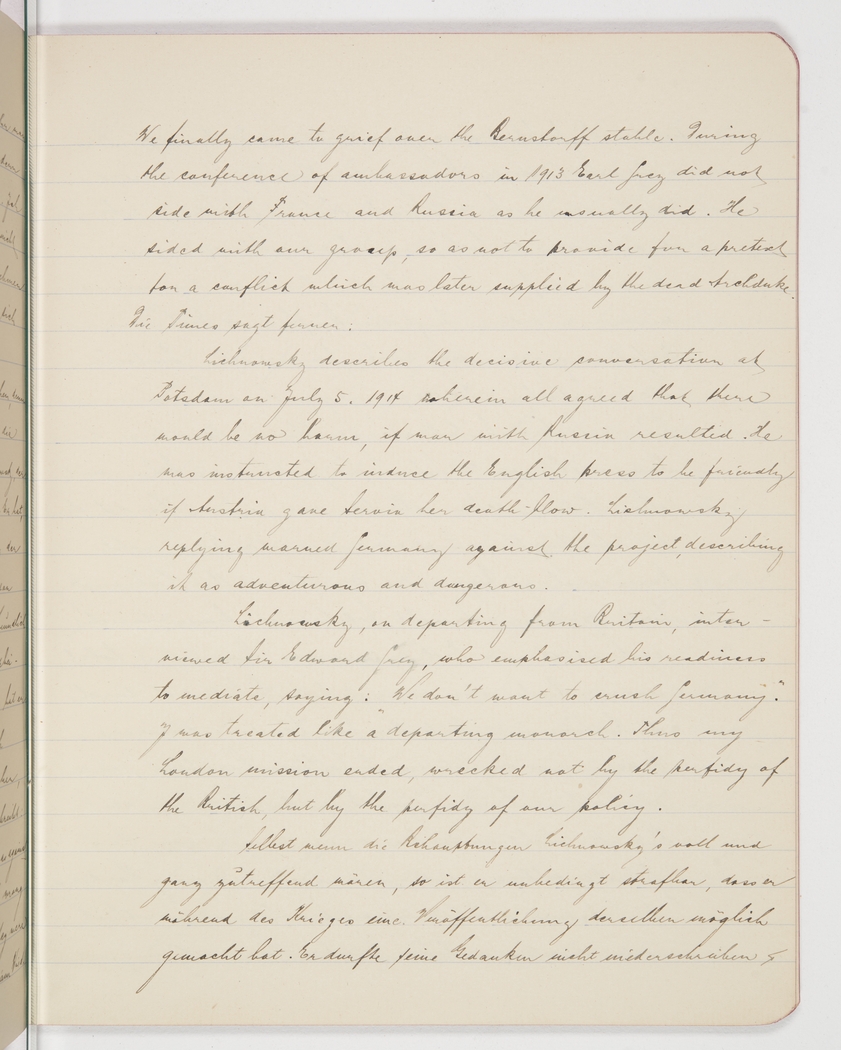 We finally came to grief over the Bernstorff stable. During
the conference of ambassadors in 1913 Earl Grey did not
side with France and Russia as he usually did. He
sided with our group, so as not to provide for a pretext
for a conflict which was later supplied by the dead Archduke.
Die Times sagt ferner:
Lichnowsky describes the decisive conversation at
Potsdam on July 5. 1914 wherein all agreed that there
would be no harm, if war with Russia resulted. He
was instructed to induce the English press to be friendly
if Austria gave Servia her death-blow. Lichnowsky
replying warned Germany against the project, describing
it as adventurous and dangerous.
Lichnowsky, on departing from Britain, inter-
viewed Sir Edward Grey, who emphasised his readiness
to mediate, saying: "We don't want to crush Germany."
I was treated like a departing monarch. Thus my
London mission ended, wrecked not by the perfidy of
the British, but by the perfidy of our policy.
Selbst wenn die Behauptungen Lichnowsky's voll und
ganz zutreffend wären, so ist er unbedingt strafbar, dass er
während des Krieges eine Veröffentlichung derselben möglich
gemacht hat. Er durfte seine Gedanken nicht niederschreiben